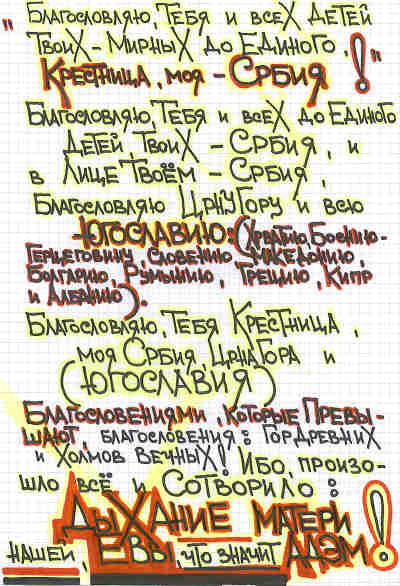 "Благословляю, Тебя и всеХ детей
Твоих - Мирных до Единого,
Крестница, моя - Сербия!"
Благословляю, Тебя и всеХ до Единого
Детей, Твоих - Сербия, и
в Лице Твоём - Сербия,
Благословляю Црну Гору и всю
-Югославию: (Хрватию, Боснию-
Герцеговину, Словению, Македонию,
Болгарию, Румынию, Грецию, Кипр
и Албанию).
Благословляю, Тебя Крестница,
моя Србия, Црна Гора и
(Югославия)
Благословениями, которые Превы-
шают, благословения: Гор Древних
и Холмов Вечных! Ибо, произо-
шло всё и Сотворило:
Дыхание матери
нашей, Евы, что значит Адэм!